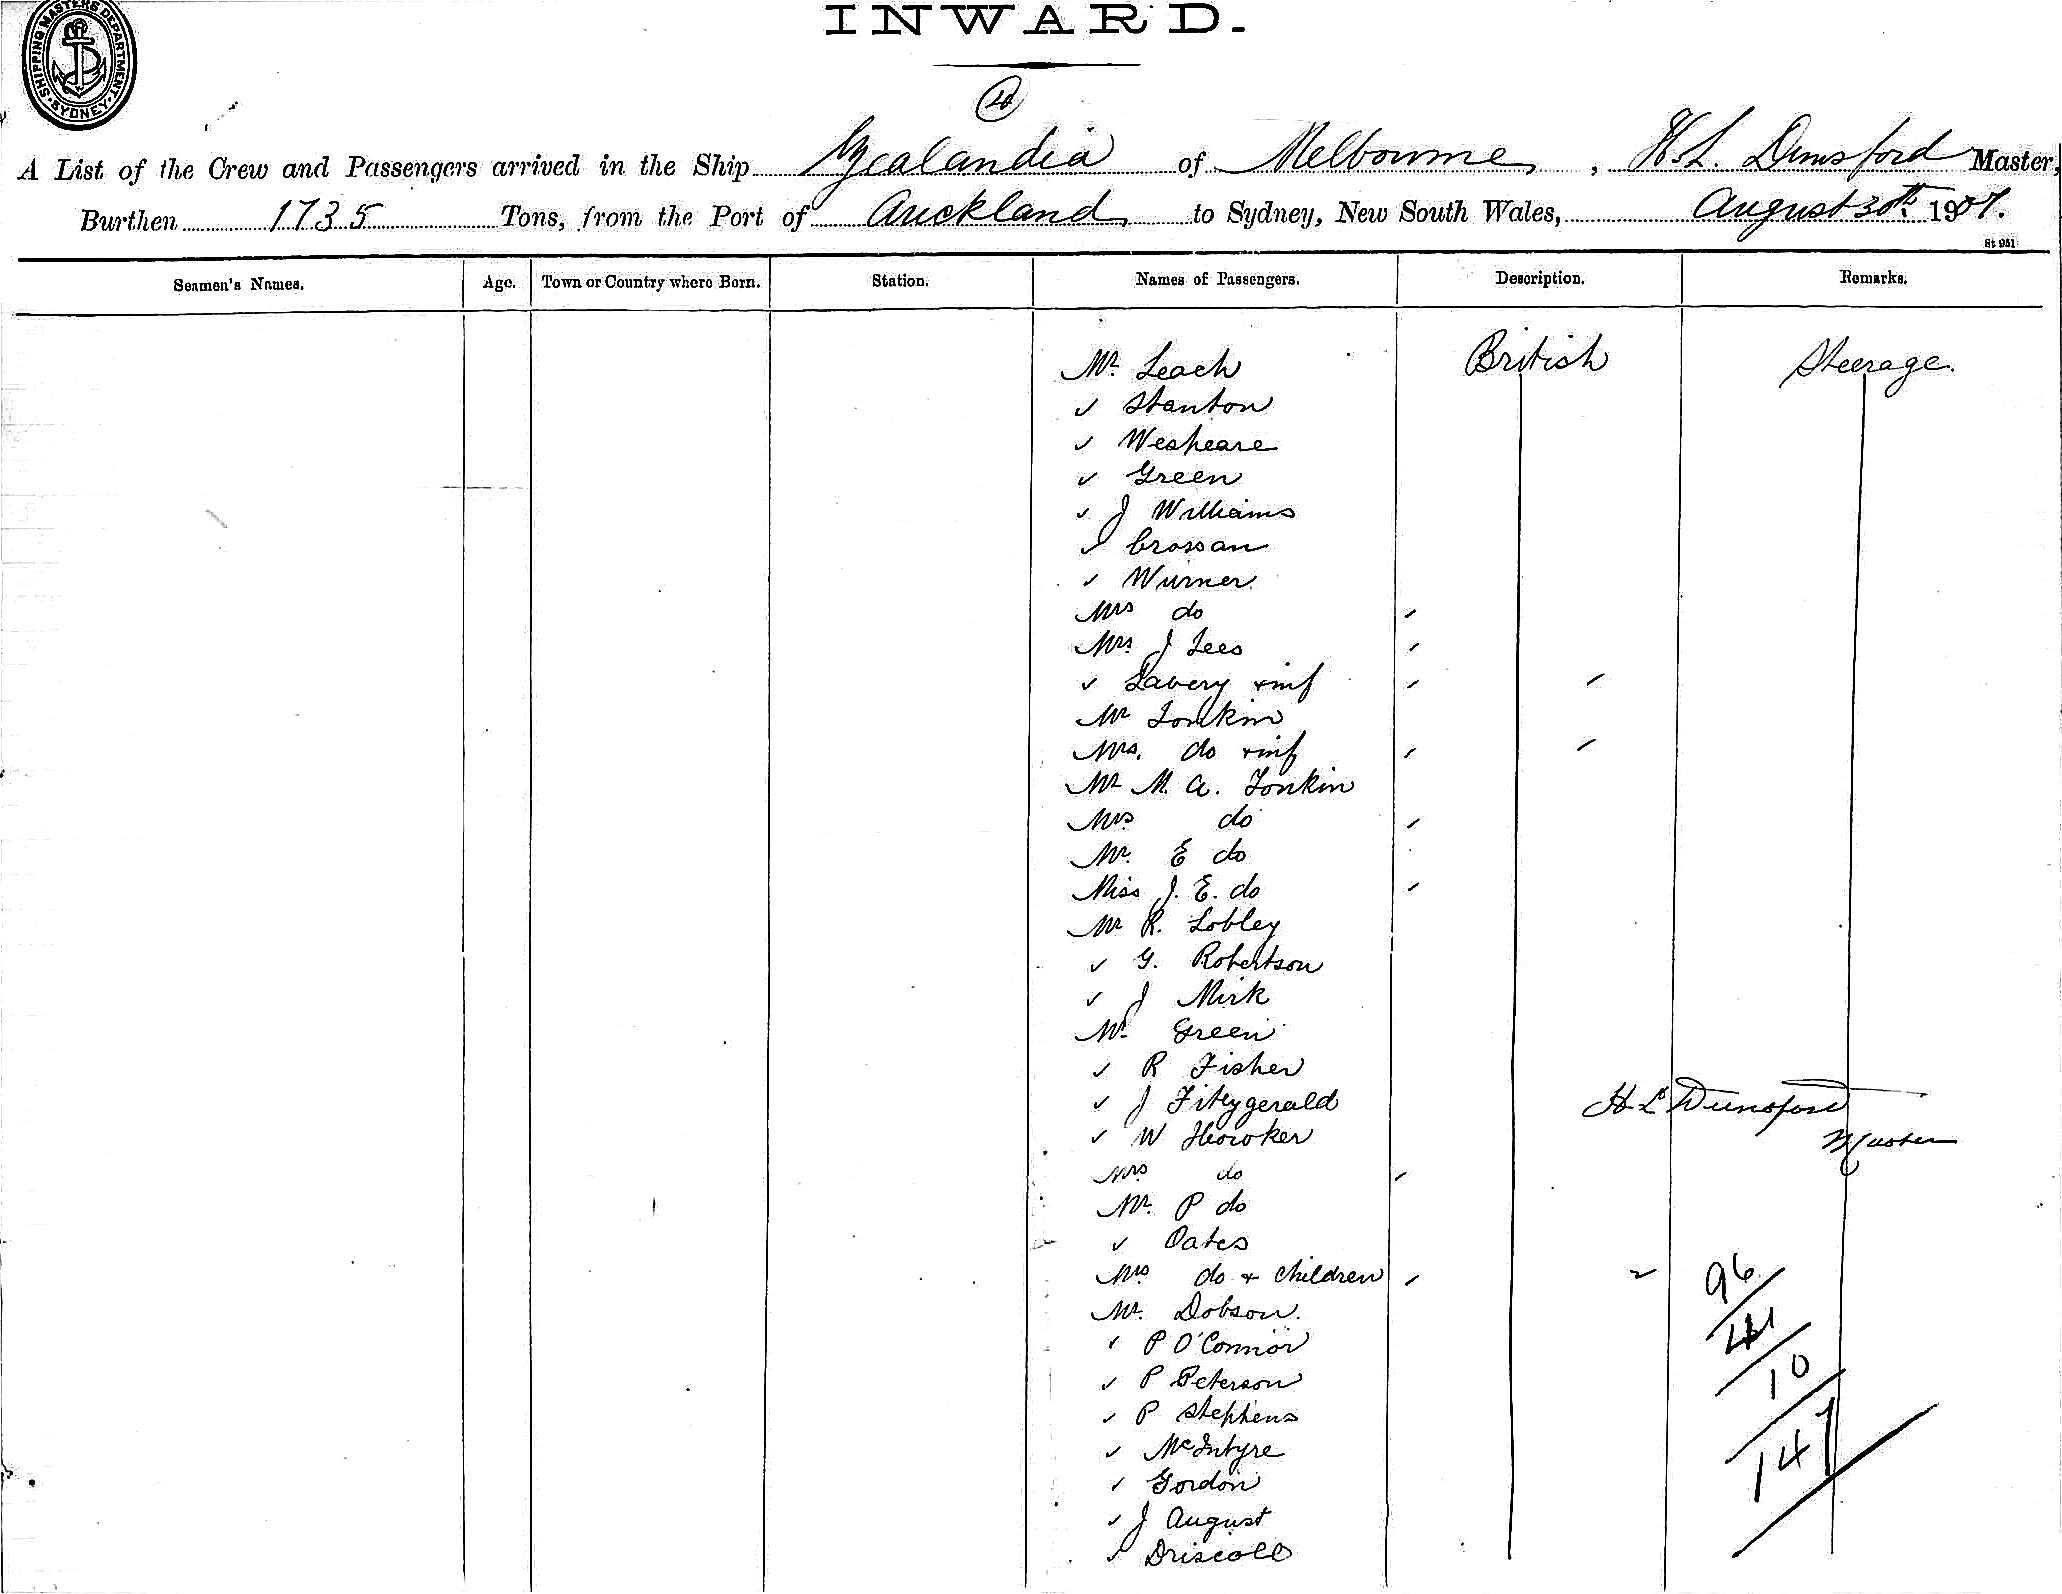 SHIPPING MASTERS DEPARTMENT. SYDNEY.
INWARD.
A List of the Crew and Passengers arrived in the Ship Zealandia of Melbourne, H. L. Dunsford Master,
Burthen 1735 Tons, from the Port of Auckland to Sydney, New South Wales, August 30th 1907.
St 951
Seamen's Names. Age. Town or Country where Born. Station. Names of Passengers. Description. Remarks.
Mr. Leach British Steerage.
✓ Stanton
✓ Wespeare
✓ Green
✓ J Williams
✓ Crossan
✓ Wurner
Mrs do
Mrs. J Lees
✓ Lavery + inf
Mr Tonkin
Mrs. do + inf
Mr M. A. Tonkin
Mrs do
Mr. E do
Miss J. E. do
Mr R. Lobley
✓ G. Robertson
✓ J Mirk
Mr. Green
✓ R Fisher
✓ J Fitzgerald
H L Dunsford
✓ W Hooker
Master
Mrs do
Mr. P do
✓ Oates
Mrs do + children
96
Mr. Dobson.
41
✓ P O'Connor
10
✓ P Peterson
✓ P Stephens
147
✓ McIntyre
✓ Gordon
✓ J August
✓ Driscoll